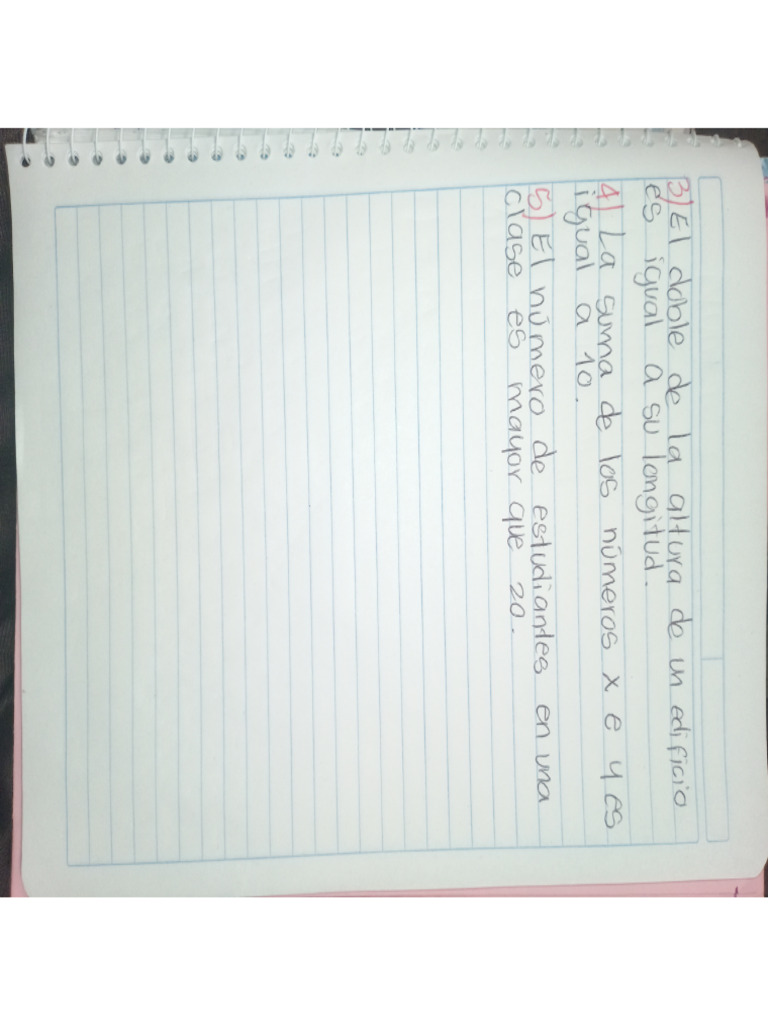 3) El doble de la altura de un edificio
es igual a su longitud.
4) La suma de los números x e y es
igual a 10.
5) El número de estudiantes en una
clase es mayor que 20.